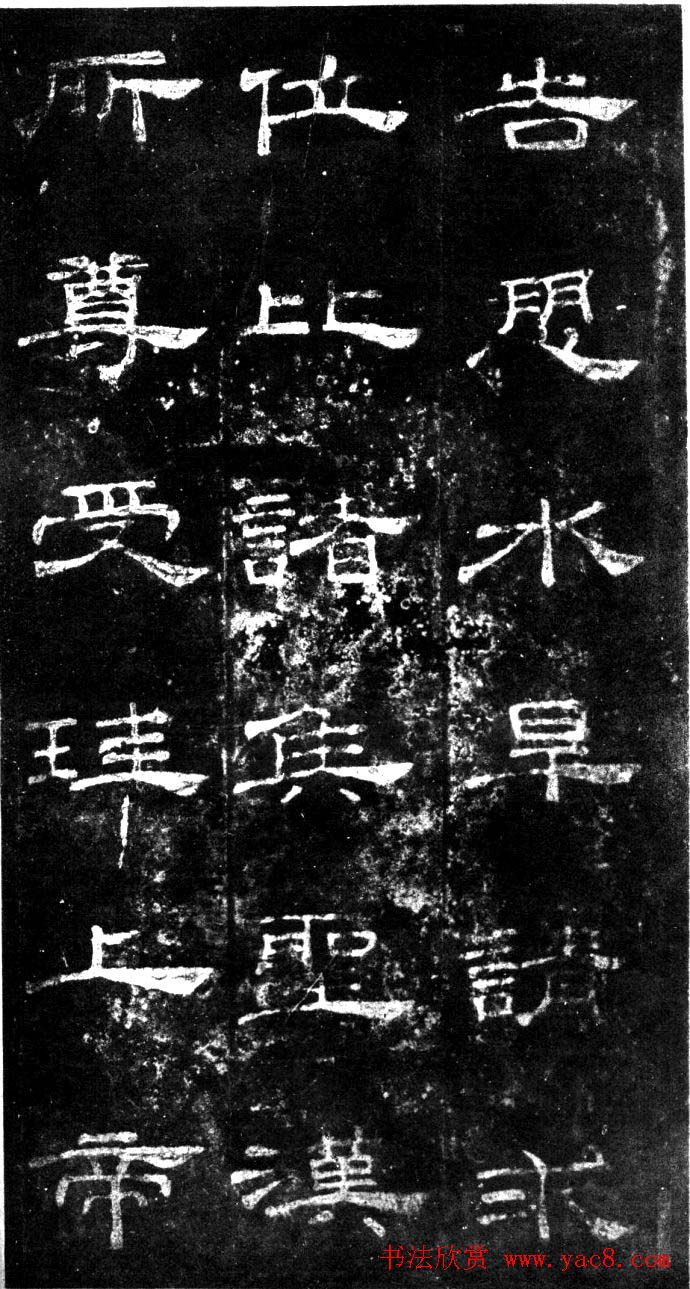 告愬水旱請求
位比諸侯聖漢
所尊受珪上帝
书法欣赏 www.yac8.com